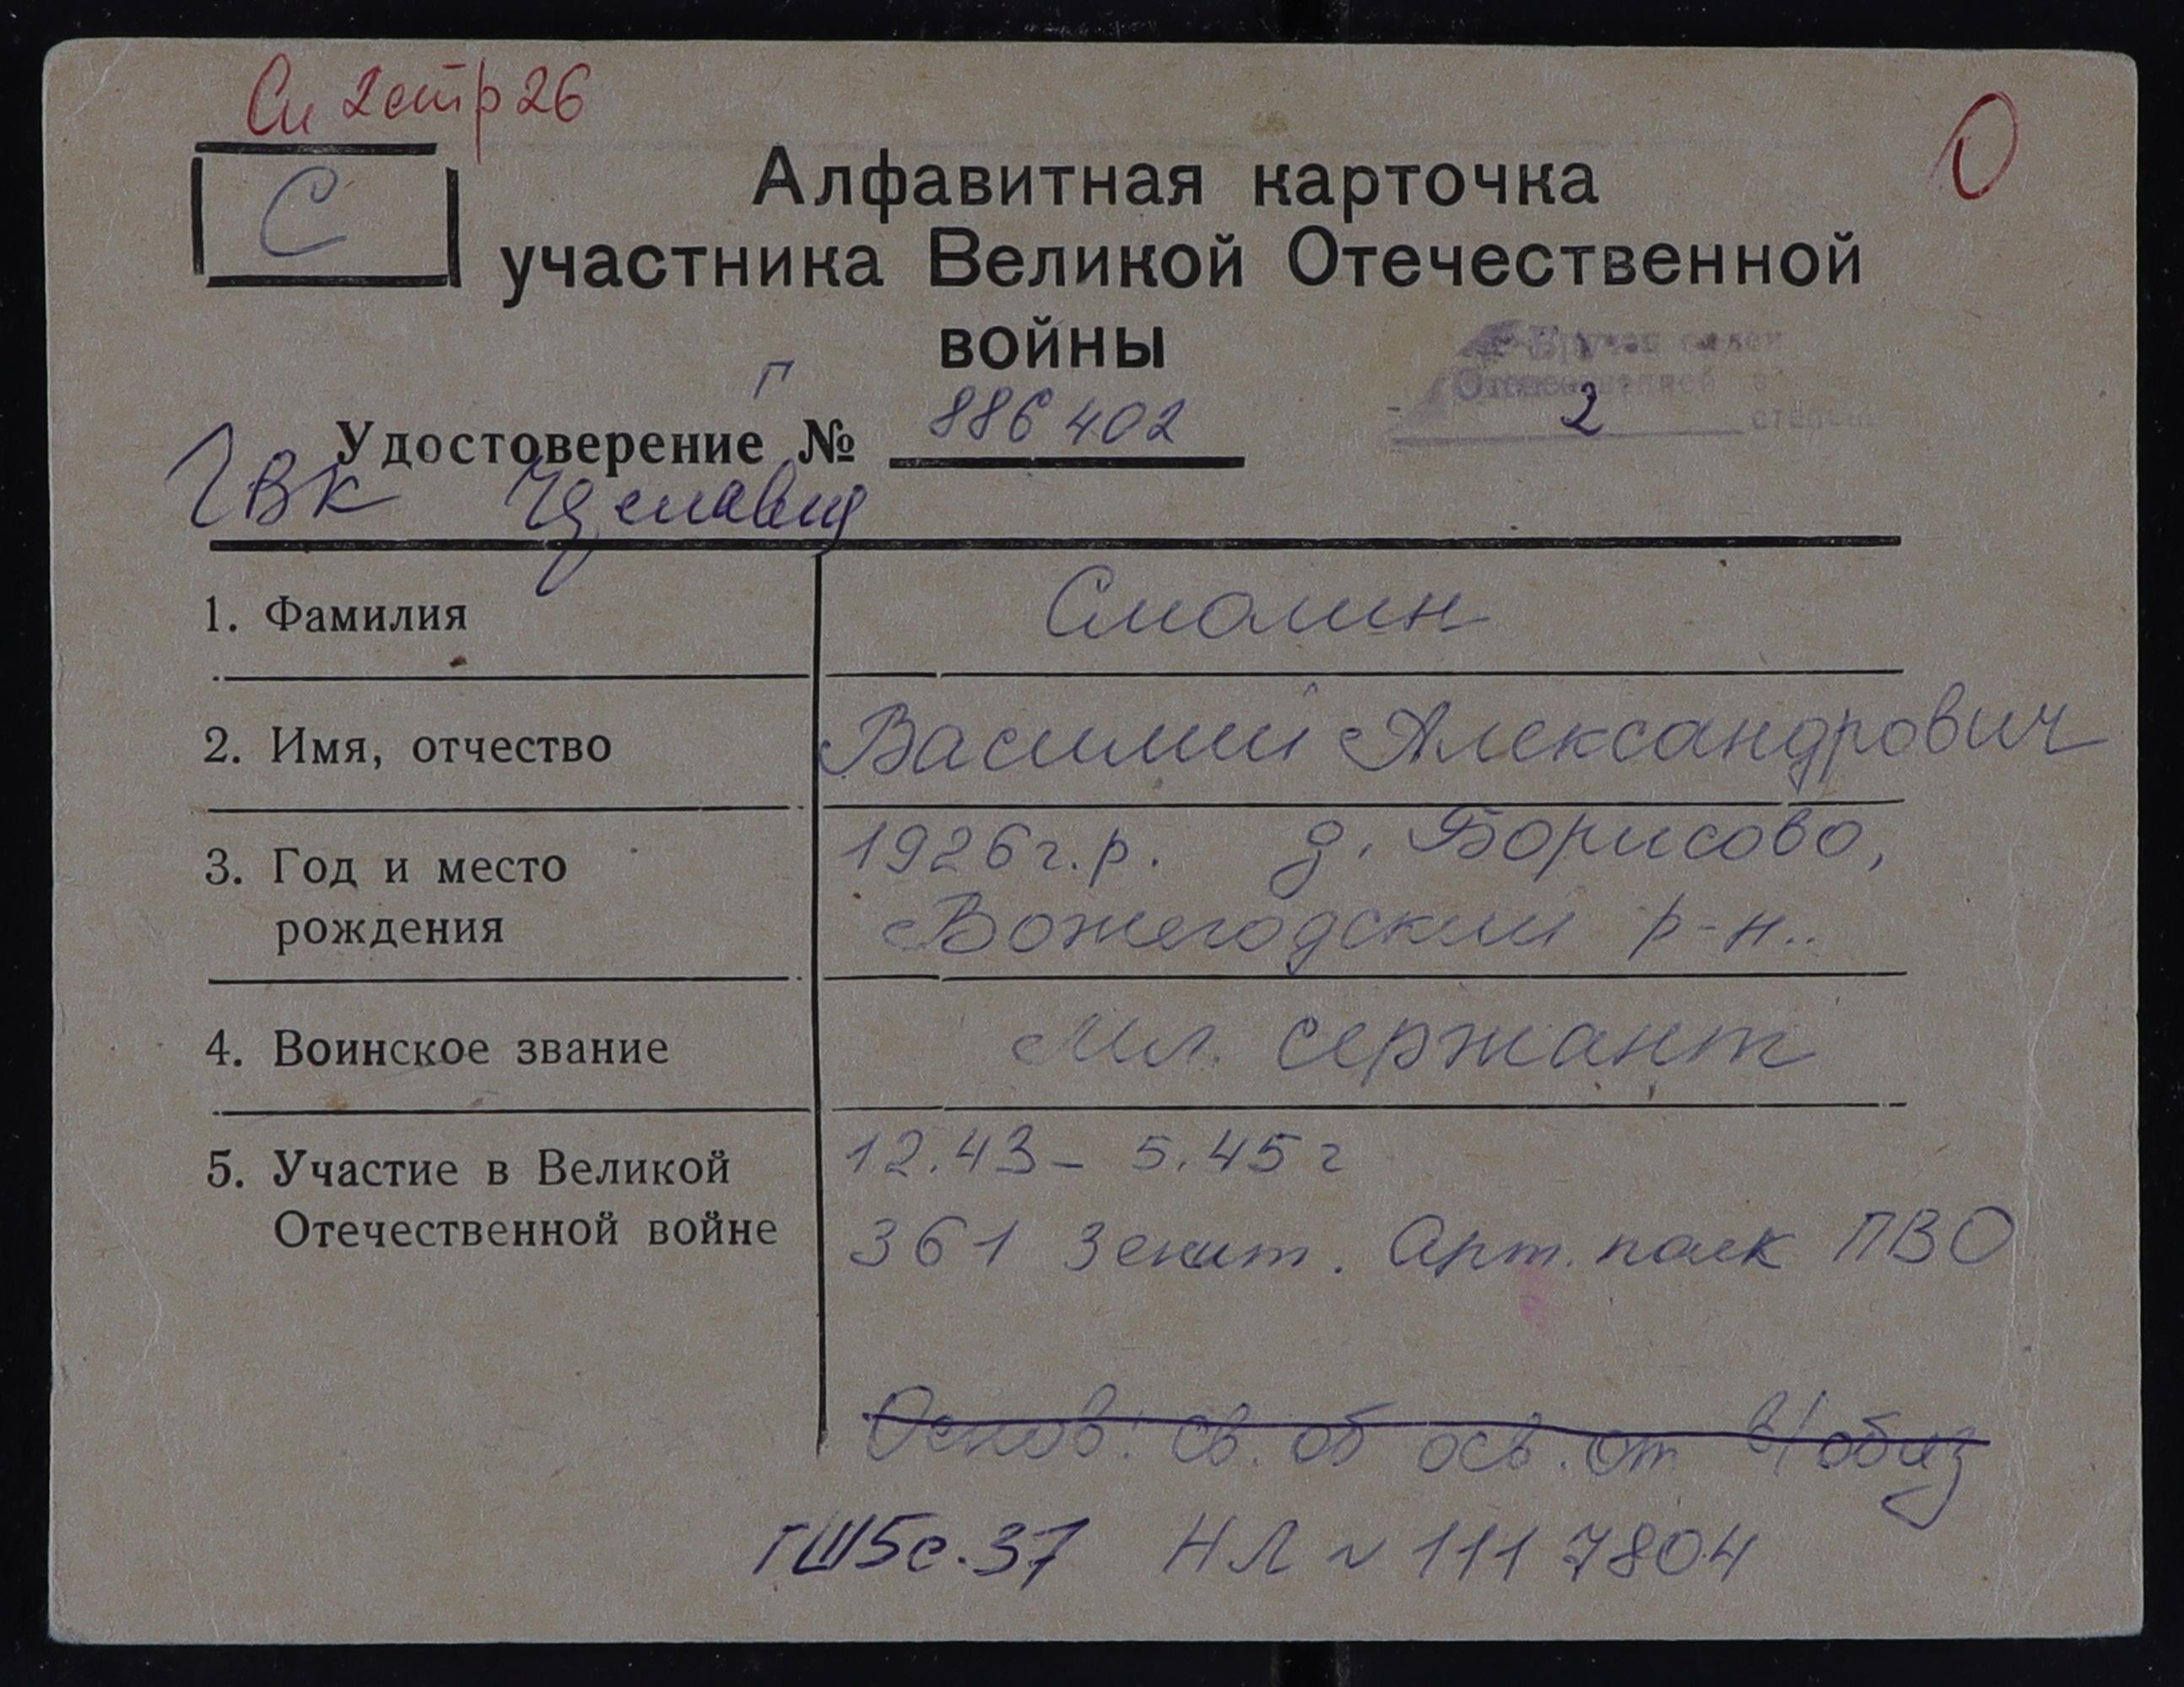 Сп 2 стр 26
О
С
Алфавитная карточка
участника Великой Отечественной
войны
Вручен орден
Отечественной
2 степени
Г
Удостоверение № 886402
ГВК
1. Фамилия Смолин
2. Имя, отчество Василий Александрович
3. Год и место 1926 г.р. д. Борисово,
рождения Вожегодский р-н..
4. Воинское звание Мл. сержант
5. Участие в Великой 12.43 – 5.45 г
Отечественной войне 361 Зенит. Арт. полк ПВО
Основ: св. об осв. от в/обяз
ГШ5с.37 НЛ № 1117804